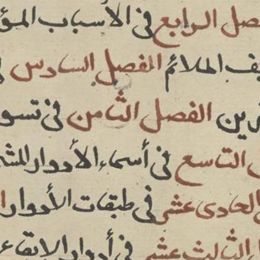 فصل الرابع فى الأسباب المؤ
يف الملائم الفصل السادس
رين الفصل الثامن فى تسو
ل التاسع فى أسماء الأدوار المش
الحادى عشر فى طبقات الأدوار ا
ل الثالث عشر فى أدوار الإيقاع